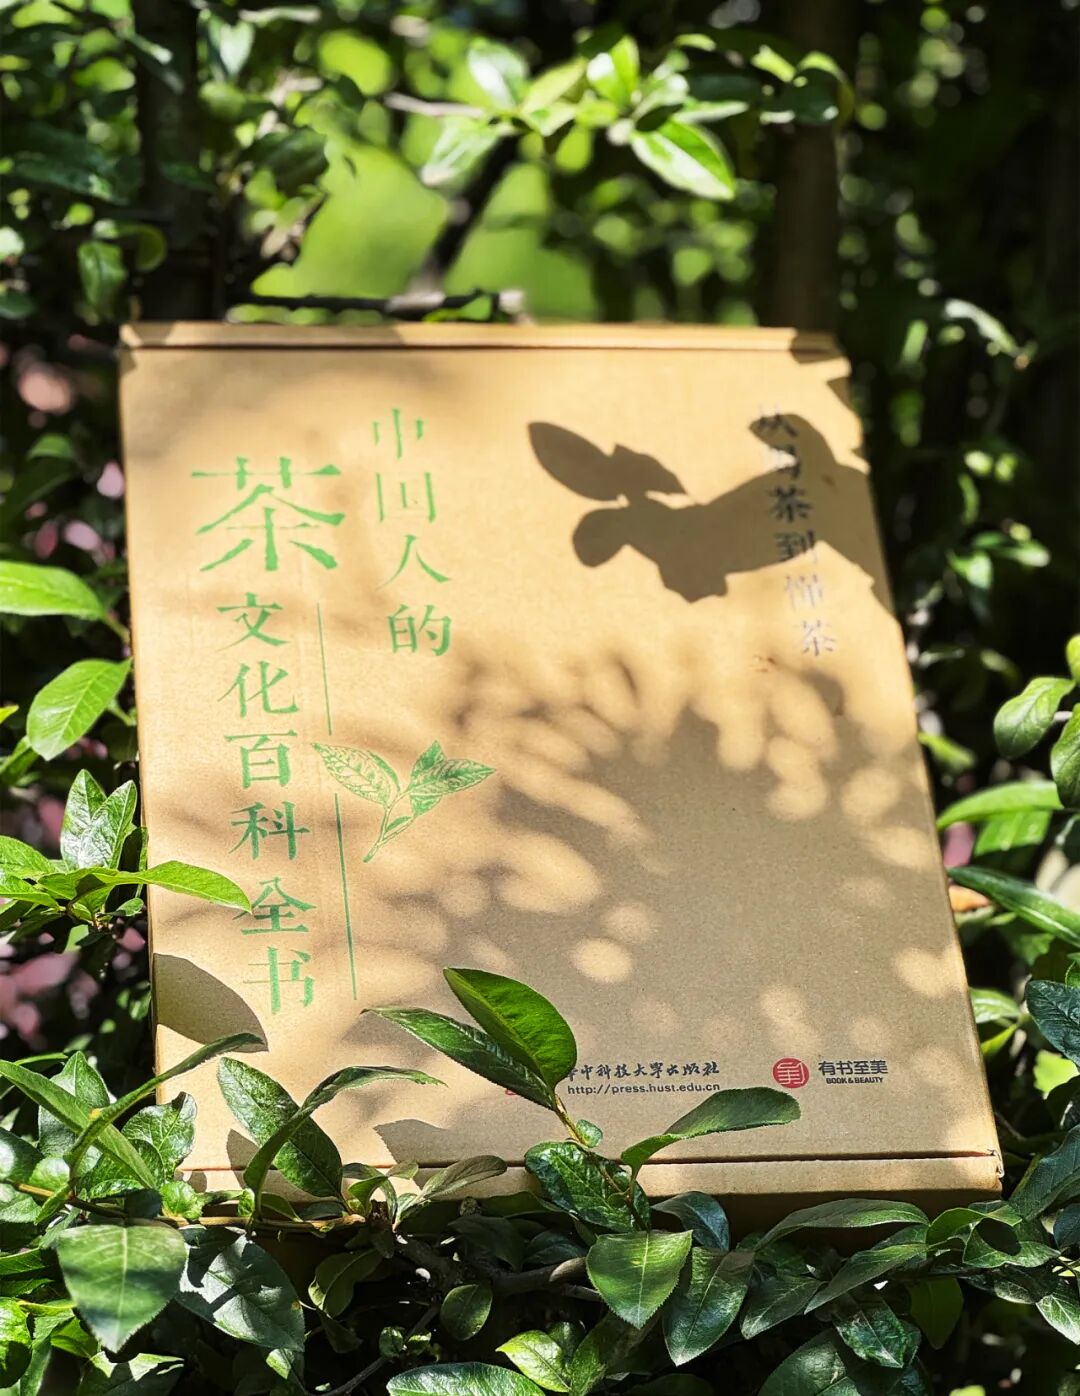 中国人的
茶文化百科全书
从喝茶到懂茶
华中科技大学出版社
http://press.hust.edu.cn
有书至美
BOOK & BEAUTY